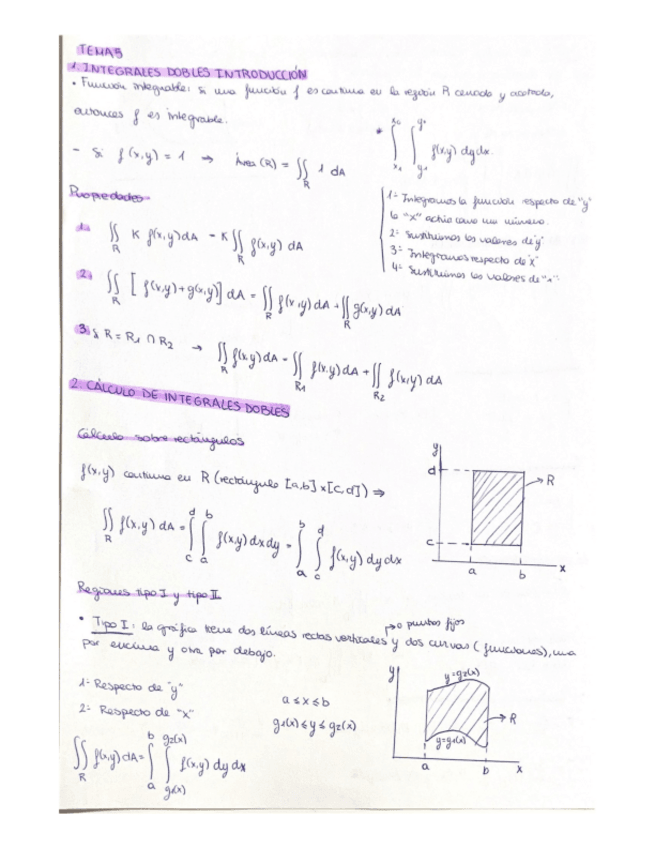 TEMA 5
1. INTEGRALES DOBLES INTRODUCCIÓN
• Función integrable: si una función f es continua en la región R cerrada y acotada,
entonces f es integrable.
- Si f(x,y) = 1 → Área (R) = ∬_R 1 dA
* ∫ ∫ f(x,y) dy dx
1º Integramos la función respecto de "y"
la "x" actúa como un número.
2º Sustituimos los valores de "y"
3º Integramos respecto de "x"
4º Sustituimos los valores de "x"
Propiedades
1. ∬_R K f(x,y) dA = K ∬_R f(x,y) dA
2. ∬_R [f(x,y)+g(x,y)] dA = ∬_R f(x,y) dA + ∬_R g(x,y) dA
3. Si R = R1 ∩ R2 → ∬_R f(x,y) dA = ∬_R1 f(x,y) dA + ∬_R2 f(x,y) dA
2. CÁLCULO DE INTEGRALES DOBLES
Cálculo sobre rectángulos
f(x,y) continua en R (rectángulo [a,b] x [c,d]) ⇒
∬_R f(x,y) dA = ∫_c^d ∫_a^b f(x,y) dx dy = ∫_a^b ∫_c^d f(x,y) dy dx
y
d
→ R
c
a b x
Regiones tipo I y tipo II
→ o puntos fijos
• Tipo I: la gráfica tiene dos líneas rectas verticales y dos curvas (funciones), una
por encima y otra por debajo.
1º Respecto de "y"
2º Respecto de "x"
a ≤ x ≤ b
g1(x) ≤ y ≤ g2(x)
∬_R f(x,y) dA = ∫_a^b ∫_g1(x)^g2(x) f(x,y) dy dx
y
y=g2(x)
→ R
y=g1(x)
a b x